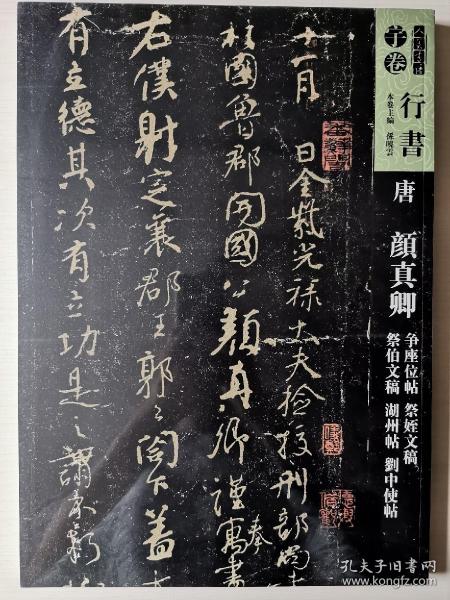 人美書譜
子卷
行書
本卷主編 孫曉雲
唐 顏真卿
争座位帖 祭姪文稿
祭伯文稿 湖州帖 劉中使帖
十一月 日金紫光祿大夫檢校刑部尚
柱國魯郡開國公顏真卿謹寓書
奏
右僕射定襄郡王郭公閤下蓋太
有立德其次有立功是之謂不朽
孔夫子旧书网
www.kongfz.com